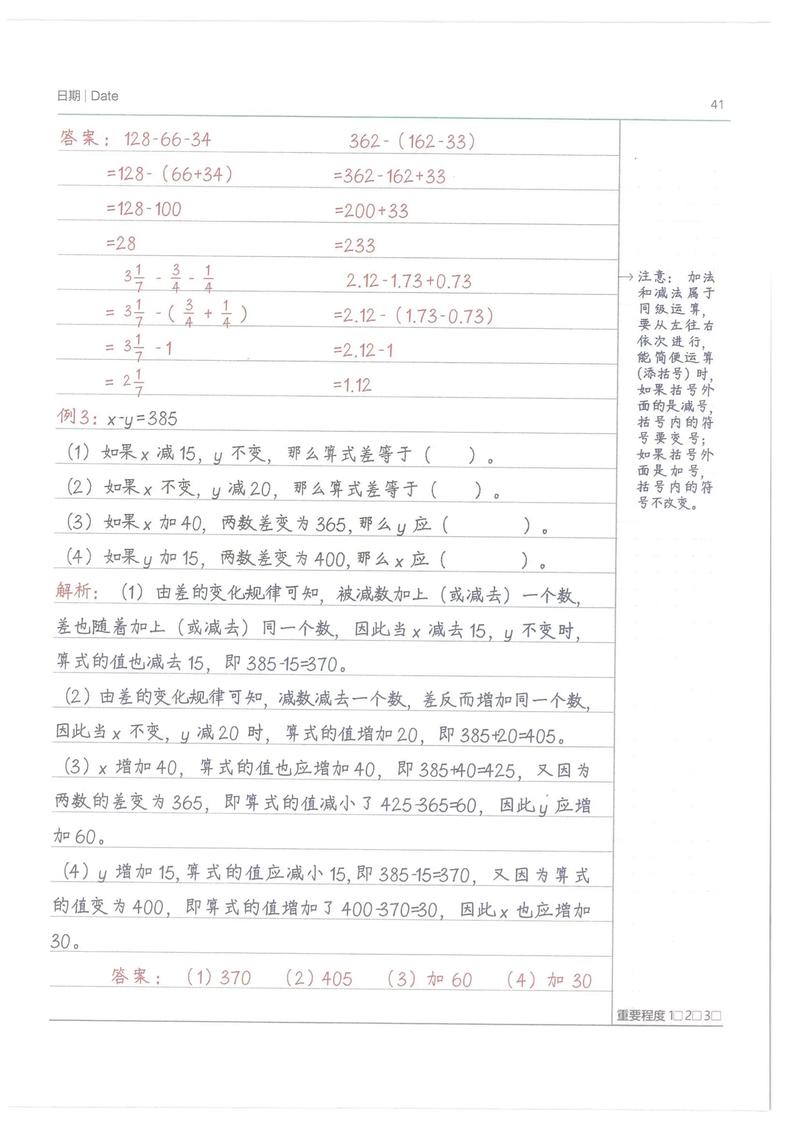 日期 | Date
41
答案：128-66-34 362-(162-33)
=128-(66+34) =362-162+33
=128-100 =200+33
=28 =233
3 1/7 - 3/4 - 1/4 2.12-1.73+0.73
= 3 1/7 -( 3/4 + 1/4 ) =2.12-(1.73-0.73)
= 3 1/7 -1 =2.12-1
= 2 1/7 =1.12
例3：x-y=385
(1) 如果 x 减15，y 不变，那么算式差等于（ ）。
(2) 如果 x 不变，y 减20，那么算式差等于（ ）。
(3) 如果 x 加 40，两数差变为 365,那么 y 应（ ）。
(4) 如果 y 加 15，两数差变为 400,那么 x 应（ ）。
解析：(1) 由差的变化规律可知，被减数加上（或减去）一个数，
差也随着加上（或减去）同一个数，因此当 x 减去 15，y 不变时，
算式的值也减去 15，即 385-15=370。
(2) 由差的变化规律可知，减数减去一个数，差反而增加同一个数，
因此当 x 不变，y 减20 时，算式的值增加 20，即 385+20=405。
(3) x 增加 40，算式的值也应增加 40，即 385+40=425，又因为
两数的差变为 365，即算式的值减小了 425-365=60，因此 y 应增
加 60。
(4) y 增加 15,算式的值应减小 15,即 385-15=370，又因为算式
的值变为 400，即算式的值增加了 400-370=30，因此 x 也应增加
30。
答案：(1) 370 (2) 405 (3) 加 60 (4) 加 30
→注意：加法
和减法属于
同级运算，
要从左往右
依次进行，
能简便运算
(添括号)时，
如果括号外
面的是减号，
括号内的符
号要变号；
如果括号外
面是加号，
括号内的符
号不改变。
重要程度 1□ 2□ 3□